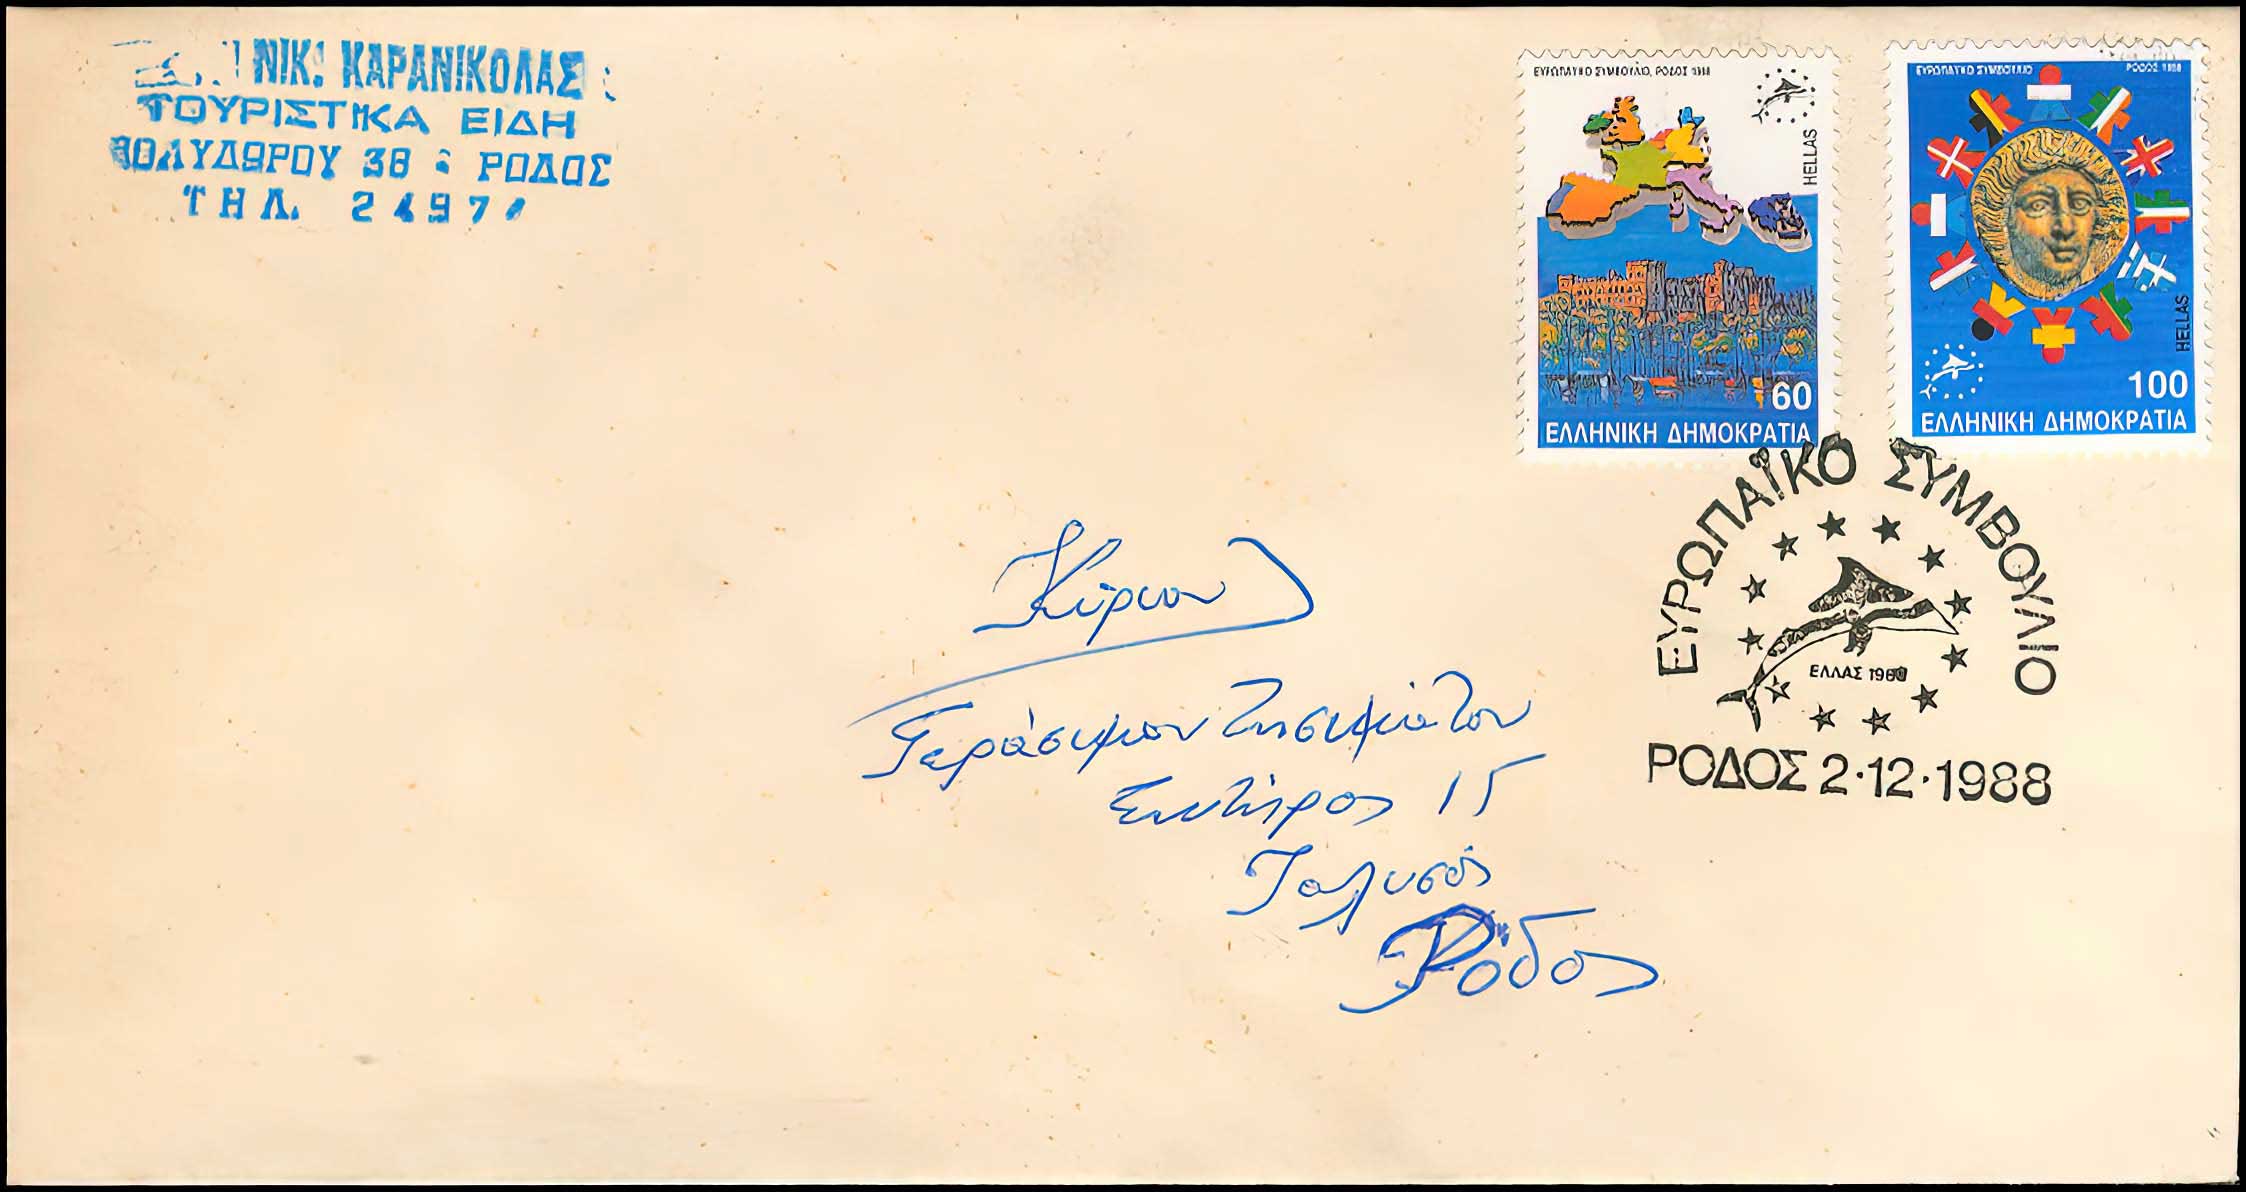 ΝΙΚ. ΚΑΡΑΝΙΚΟΛΑΣ
ΤΟΥΡΙΣΤΙΚΑ ΕΙΔΗ
ΠΟΛΥΔΩΡΟΥ 38 : ΡΟΔΟΣ
ΤΗΛ.
ΕΥΡΩΠΑΪΚΟ ΣΥΜΒΟΥΛΙΟ, ΡΟΔΟΣ 1988
HELLAS
60
ΕΛΛΗΝΙΚΗ ΔΗΜΟΚΡΑΤΙΑ
ΕΥΡΩΠΑΪΚΟ ΣΥΜΒΟΥΛΙΟ ΡΟΔΟΣ 1988
HELLAS
100
ΕΛΛΗΝΙΚΗ ΔΗΜΟΚΡΑΤΙΑ
ΕΥΡΩΠΑΪΚΟ ΣΥΜΒΟΥΛΙΟ
ΕΛΛΑΣ
ΡΟΔΟΣ 2·12·1988
Κύριον
Γεράσιμον
15
Ιαλυσός
Ρόδος